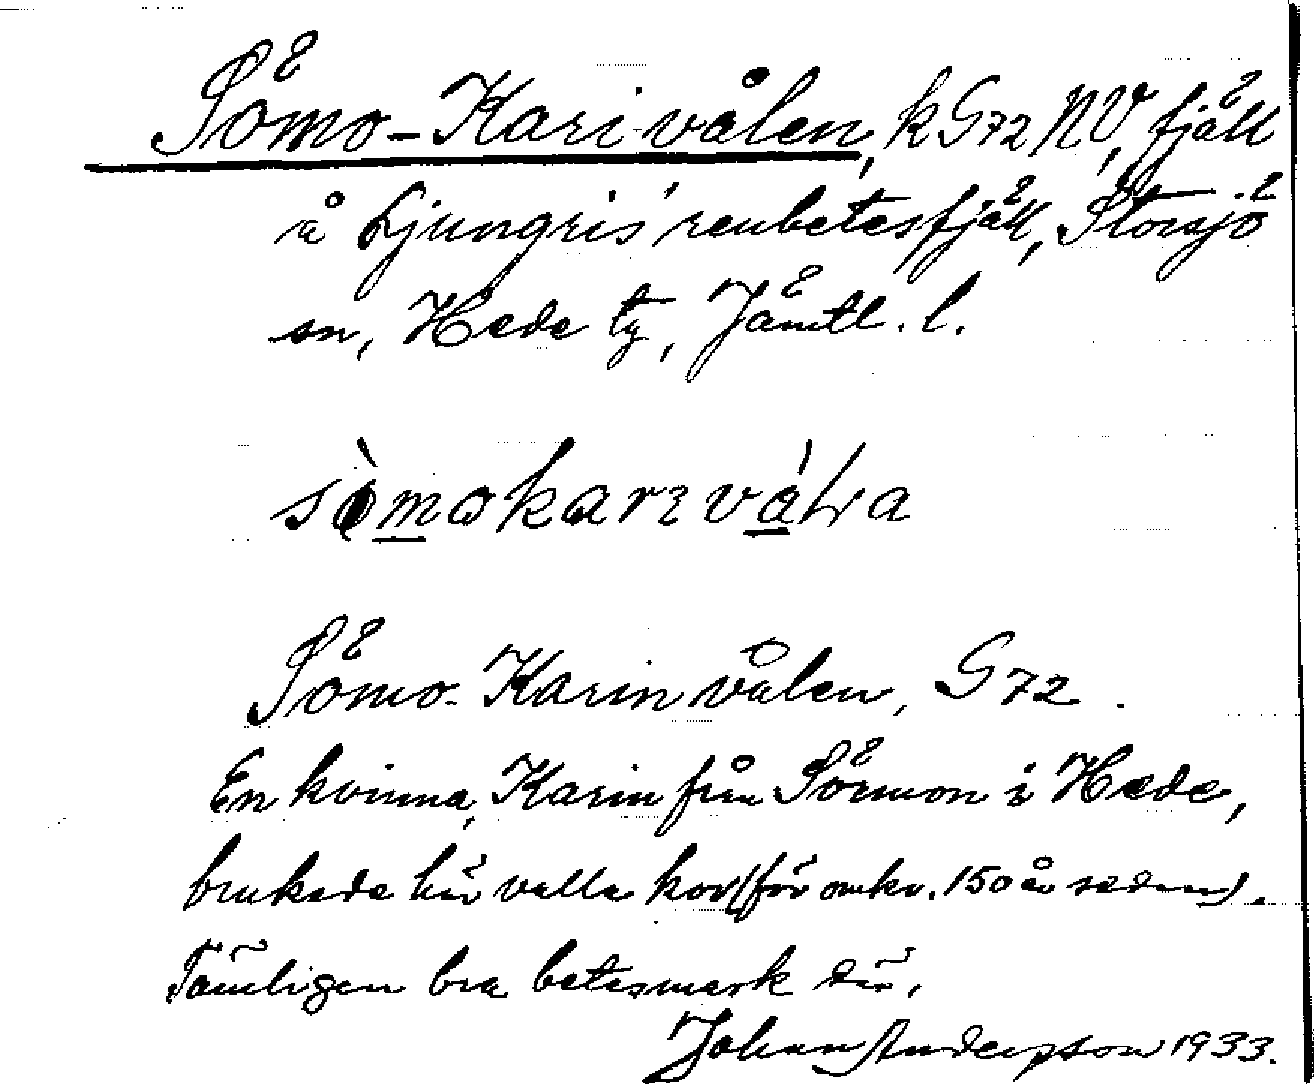 Sömo-Karivålen, k G72 NV, fjäll
å Ljungris' renbetesfjäll, Storsjö
sn, Hede tg, Jämtl. l.
Sömo-Karinvålen, G72.
En kvinna, Karin från Sörmon i Hede,
brukade här valla kor (för omkr. 150 år sedan).
Tämligen bra betesmark där.
Johan Anderpson 1933.